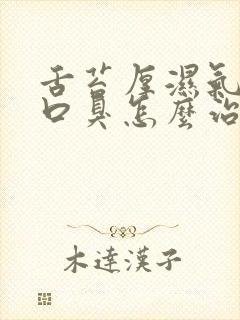 舌苔厚濕氣
口臭怎麼治
木達漢子